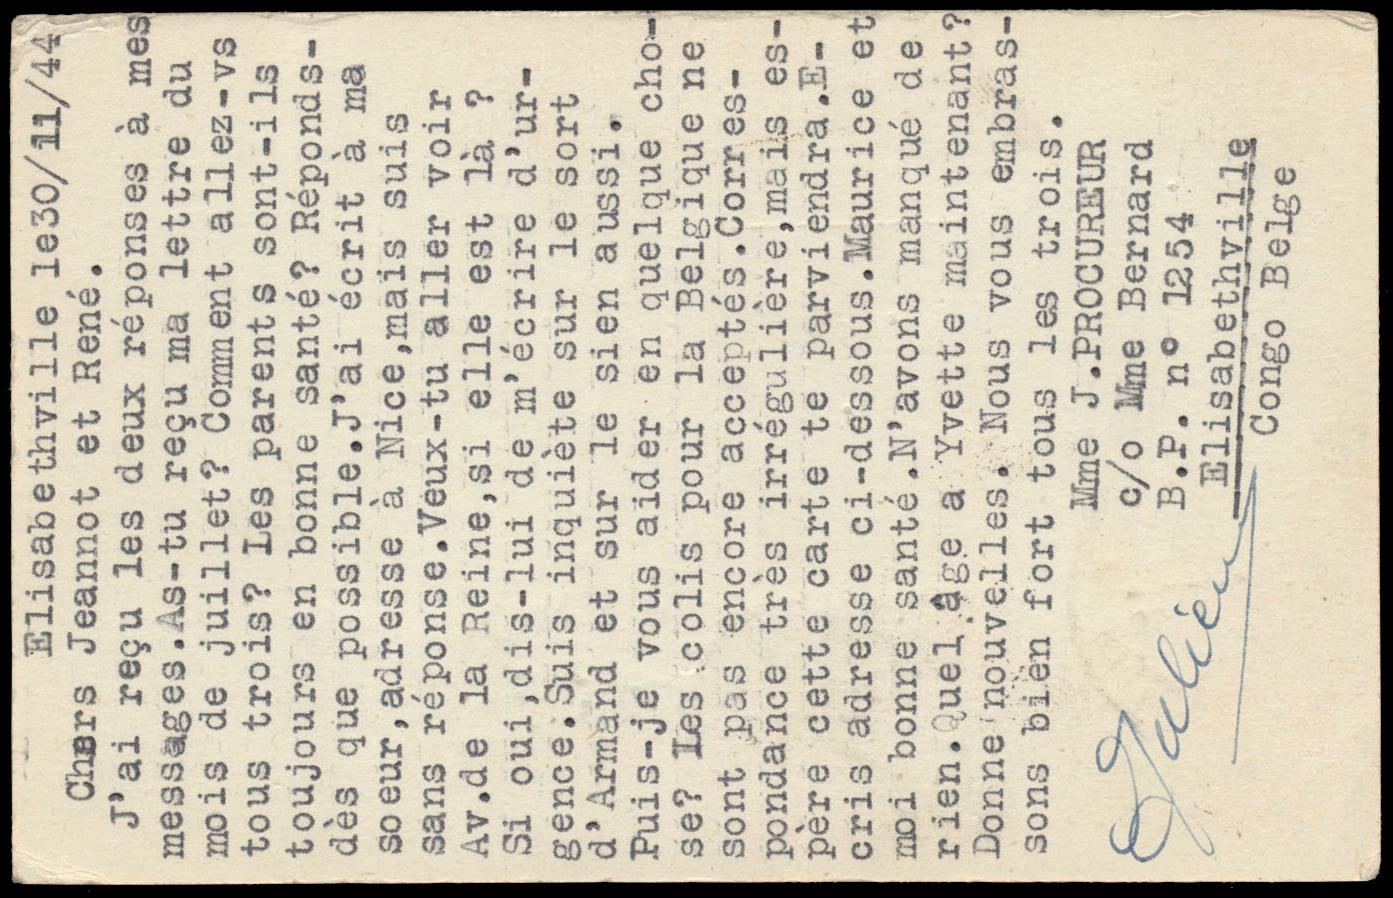 Elisabethville le30/11/44
Chers Jeannot et René.
J'ai reçu les deux réponses à mes
messages.As-tu reçu ma lettre du
mois de juillet? Comment allez-vs
tous trois? Les parents sont-ils
toujours en bonne santé? Réponds-
dès que possible.J'ai écrit à ma
soeur,adresse à Nice,mais suis
sans réponse.Veux-tu aller voir
Av.de la Reine,si elle est là ?
Si oui,dis-lui de m'écrire d'ur-
gence.Suis inquiète sur le sort
d'Armand et sur le sien aussi.
Puis-je vous aider en quelque cho-
se? Les colis pour la Belgique ne
sont pas encore acceptés.Corres-
pondance très irrégulière,mais es-
père cette carte te parviendra.E-
cris adresse ci-dessous.Maurice et
moi bonne santé.N'avons manqué de
rien.Quel âge a Yvette maintenant?
Donne nouvelles. Nous vous embras-
sons bien fort tous les trois.
Mme J.PROCUREUR
c/o Mme Bernard
B.P. n° 1254
Elisabethville
Congo Belge